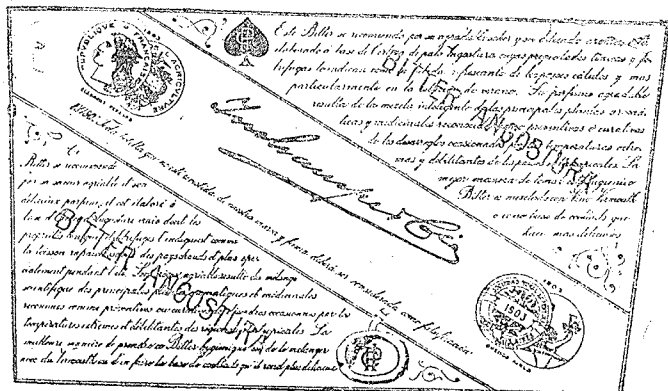 Este Bitter se recomienda por su agradable sabor y su delicado aroma. Está
elaborado á base de Corteza de palo Angostura cuyas propiedades tónicas y fe-
brifugas la indican como la bebida refrescante de los países cálidos y mas
particularmente en la época de verano. Su perfume agradable
resulta de la mezcla inteligente de las principales plantas aromá-
ticas y medicinales reconocidas como preventivas ó curativas
de los desarreglos ocasionados por las temperaturas extre-
mas y debilitantes de los países tropicales. La
mejor manera de tomar el higienico
Bitter es mezclado con Vin Vermouth
ó como base de cocktails que
hace mas deliciosos
BITTER ANGOSTURA
REPUBLIQUE FRANÇAISE
AGRICULTURE
1903
Toda botella que no esté revestida de nuestra marca y firma deberá ser considerada como falsificación
Ce
Bitter se recommande
par sa saveur agréable et son
délicieux parfum, il est élaboré à
base d'Angosture vraie dont les
propriétés toniques et fébrifuges l'indiquent comme
la boisson rafraichissante des pays chauds et plus spé-
cialement pendant l'été. Son arôme agréable résulte du mélange
scientifique des principales plantes aromatiques et médicinales
reconnues comme préventives ou curatives des désordres occasionnés par les
températures extrêmes et débilitantes des régions tropicales. La
meilleure manière de prendre ce Bitter hygiénique est de le mélanger
avec du Vermouth ou d'en faire la base de cocktails qu'il rend plus délicieux
BITTER ANGOSTURA
1903
1903